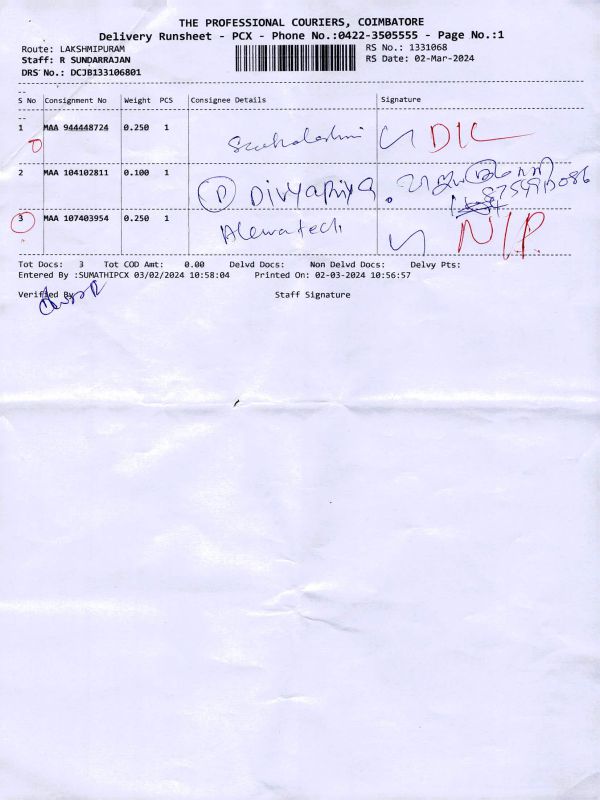 THE PROFESSIONAL COURIERS, COIMBATORE
Delivery Runsheet - PCX - Phone No.:0422-3505555 - Page No.:1
Route: LAKSHMIPURAM RS No.: 1331068
Staff: R SUNDARRAJAN RS Date: 02-Mar-2024
DRS No.: DCJB133106801
S No Consignment No Weight PCS Consignee Details Signature
1 MAA 944448724 0.250 1 D/L
2 MAA 104102811 0.100 1 D Divyapriya
3 MAA 107403954 0.250 1 N/P.
Tot Docs: 3 Tot COD Amt: 0.00 Delvd Docs: Non Delvd Docs: Delvy Pts:
Entered By :SUMATHIPCX 03/02/2024 10:58:04 Printed On: 02-03-2024 10:56:57
Verified By Staff Signature